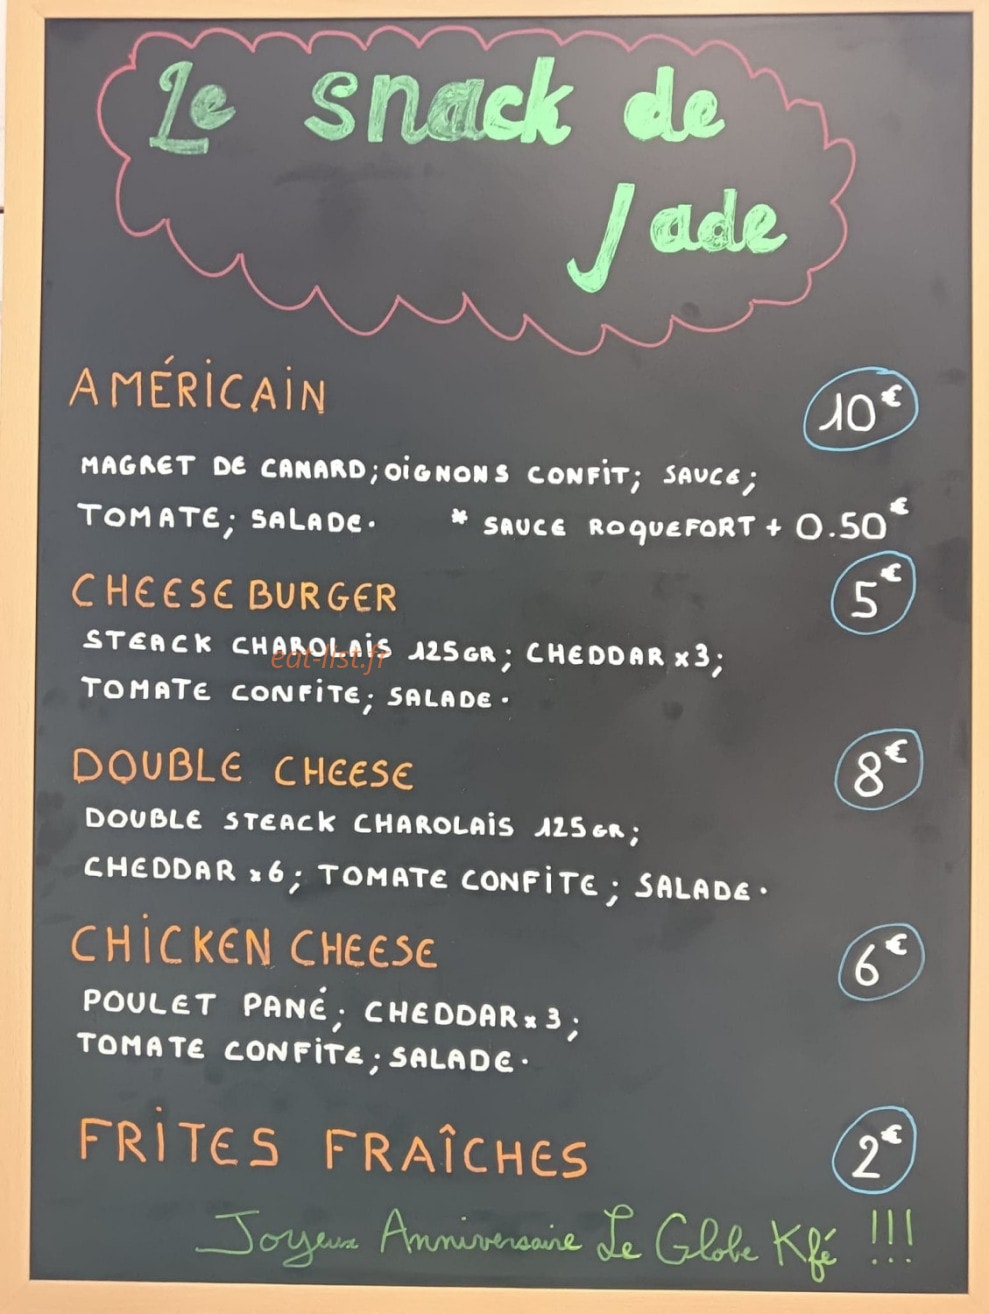 Le snack de
Jade
AMÉRICAIN
10€
MAGRET DE CANARD; OIGNONS CONFIT; SAUCE;
TOMATE; SALADE. * SAUCE ROQUEFORT + 0.50€
CHEESE BURGER
5€
STEACK CHAROLAIS 125GR; CHEDDAR x3;
eat-list.fr
TOMATE CONFITE; SALADE.
DOUBLE CHEESE
8€
DOUBLE STEACK CHAROLAIS 125GR;
CHEDDAR x6; TOMATE CONFITE; SALADE.
CHICKEN CHEESE
6€
POULET PANÉ; CHEDDAR x3;
TOMATE CONFITE; SALADE.
FRITES FRAÎCHES
2€
Joyeux Anniversaire Le Globe Kfé !!!